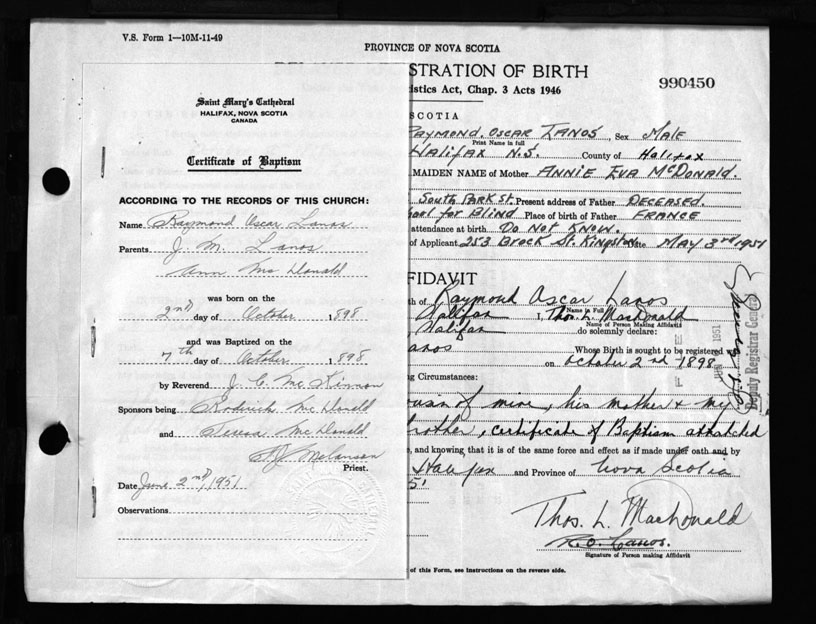 V.S. Form 1—10M-11-49
PROVINCE OF NOVA SCOTIA
Saint Mary's Cathedral
HALIFAX, NOVA SCOTIA
CANADA
Certificate of Baptism
ACCORDING TO THE RECORDS OF THIS CHURCH:
Name Raymond Oscar Lanos
Parents J. M. Lanos
Ann Mc Donald
was born on the
2nd day of October 1898
and was Baptized on the
7th day of October 1898
by Reverend J. C. Mc Kinnon
Sponsors being Roderick Mc Donald
and Teresa Mc Donald
Priest.
Date June 2nd, 1951
Observations
STRATION OF BIRTH
990450
istics Act, Chap. 3 Acts 1946
SCOTIA
RAYMOND. OSCAR LANOS, Sex MALE
Print Name in full
HALIFAX N.S. County of Halifax
MAIDEN NAME of Mother ANNIE EVA McDONALD.
SOUTH PARK ST. Present address of Father DECEASED.
ool for Blind Place of birth of Father FRANCE
attendance at birth DO NOT KNOW.
of Applicant 253 Brock St. Kingston Date MAY 3rd 1951
FIDAVIT
th of Raymond Oscar Lanos
Name in Full
Halifax I, Thos. L. MacDonald
Name of Person Making Affidavit
Halifax do solemnly declare:
anos Whose Birth is sought to be registered
on October 2nd 1898
ng Circumstances:
ousin of mine, his mother & my
rother, certificate of Baptism attatched
e, and knowing that it is of the same force and effect as if made under oath and by
Halifax and Province of Nova Scotia
51
Thos. L. MacDonald
R. O. Lanos.
Signature of Person making Affidavit
of this Form, see instructions on the reverse side.
Deputy Registrar General
1951